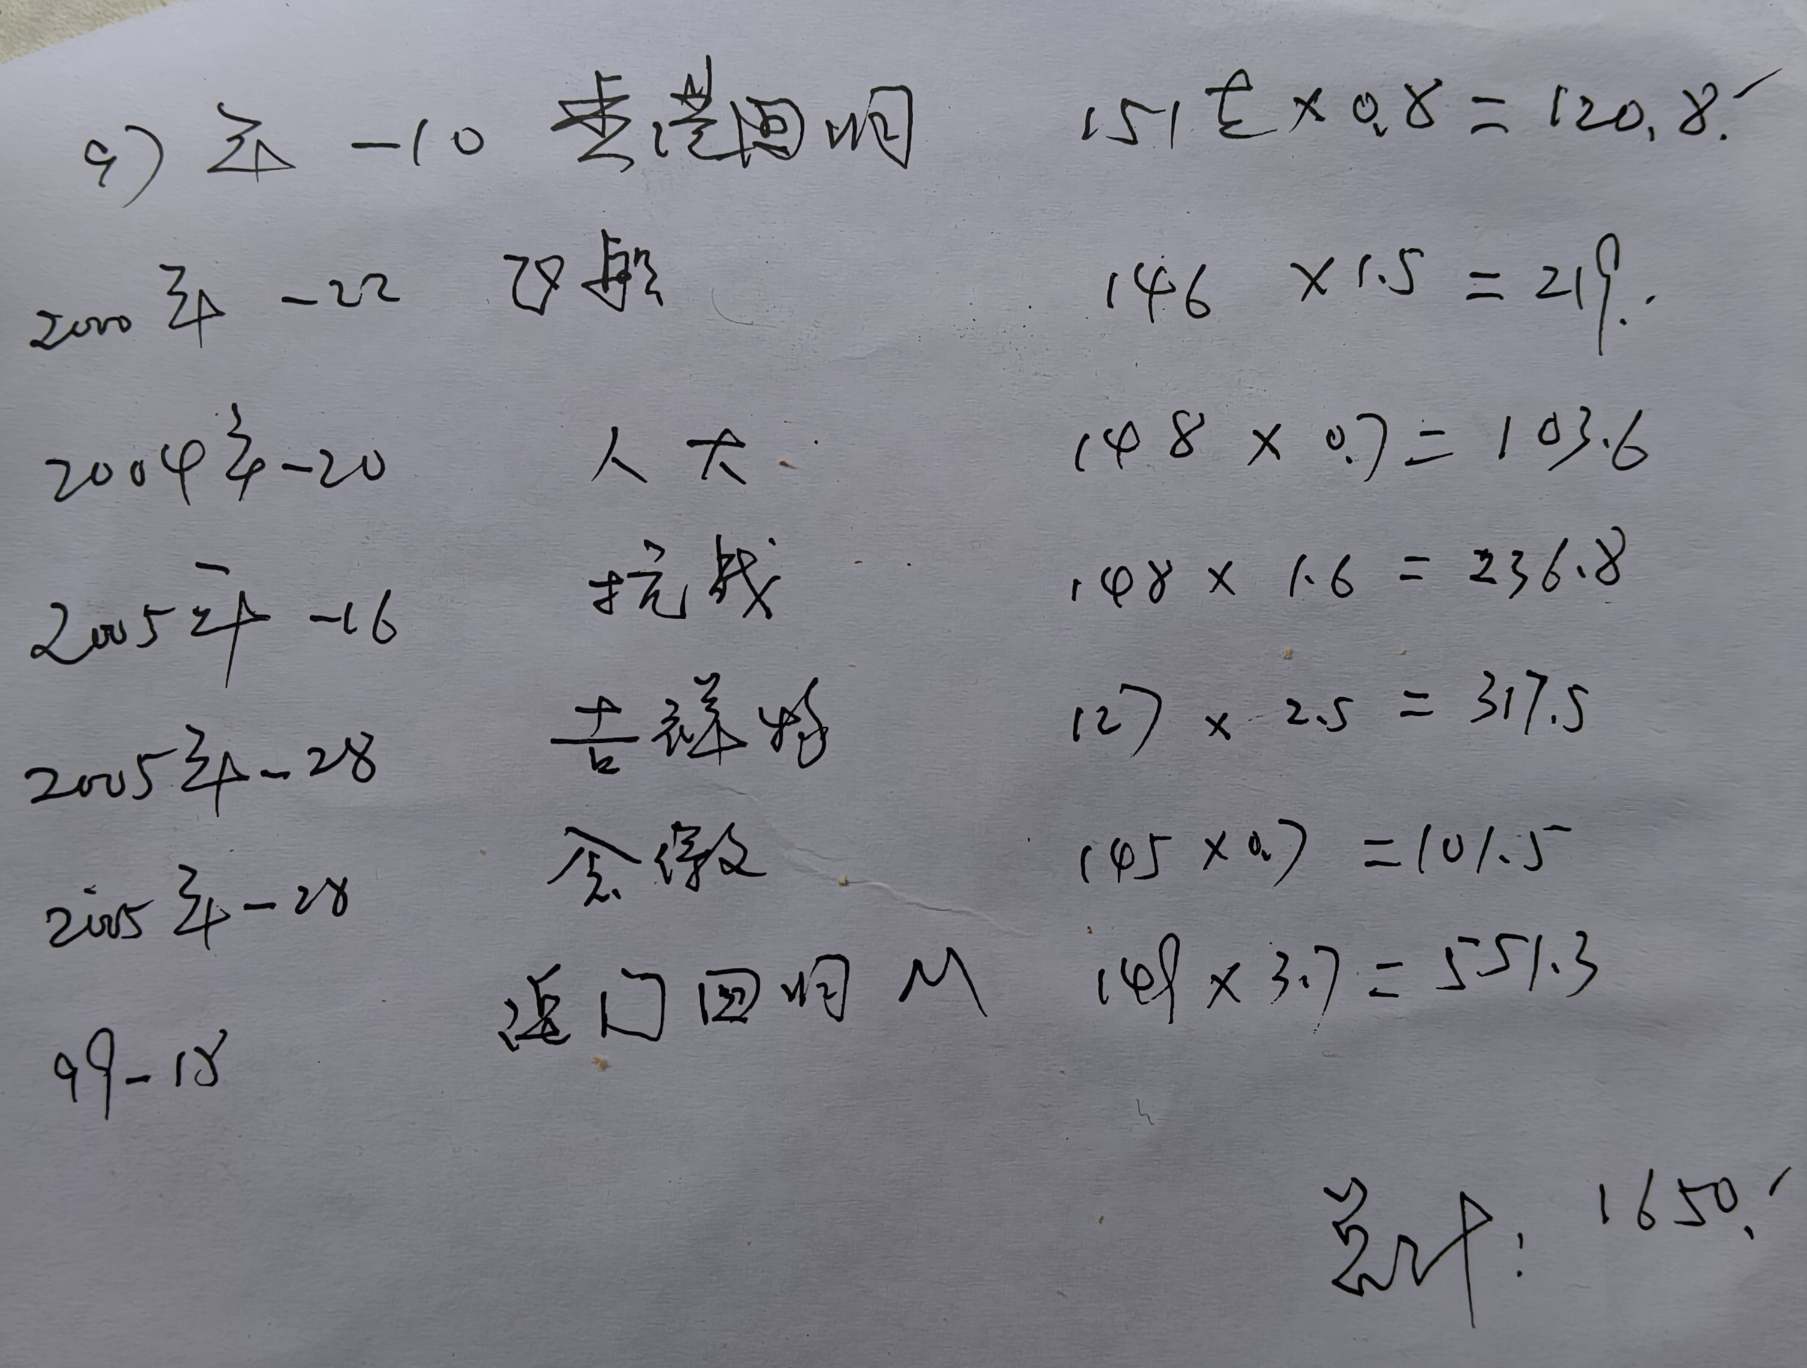 97年-10 香港回归 151E×0.8=120.8.
2000年-22 飞船 146 ×1.5=219.
2004年-20 人大 148×0.7=103.6
2005年-16 抗战 148×1.6=236.8
2005年-28 吉祥物 127×2.5=317.5
2005年-28 会徽 145×0.7=101.5
99-18 澳门回归M 149×3.7=551.3
总计:1650.